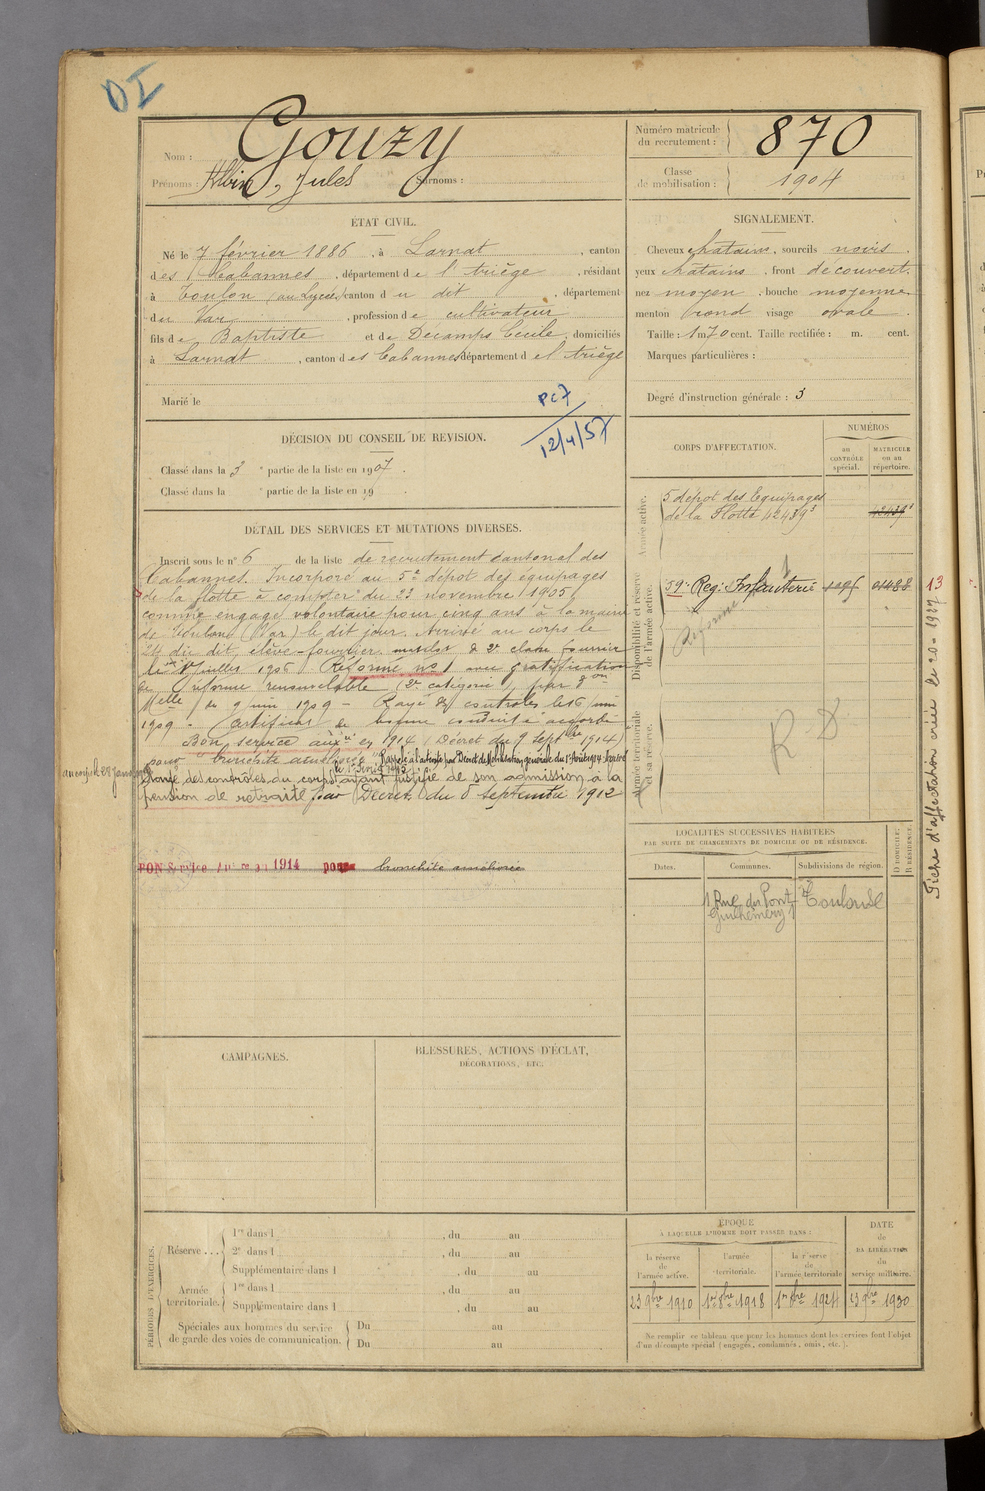 DI
Nom : Gouzy
Prénoms : Albin, Jules Surnoms :
Numéro matricule du recrutement : 870
Classe de mobilisation : 1904
ÉTAT CIVIL.
Né le 7 février 1886, à Larnat, canton
des Cabannes, département de l'Ariège, résidant
à Toulon (au Lycée) canton du dit, département
du Var, profession de cultivateur
fils de Baptiste et de Decamps Cécile, domiciliés
à Larnat, canton des Cabannes département de l'Ariège
Marié le
PC7
12/4/57
SIGNALEMENT.
Cheveux chatains, sourcils noirs
yeux chatains, front découvert.
nez moyen, bouche moyenne
menton rond visage ovale.
Taille : 1 m 70 cent. Taille rectifiée : m. cent.
Marques particulières :
Degré d'instruction générale : 3
DÉCISION DU CONSEIL DE REVISION.
Classé dans la 3e partie de la liste en 1907.
Classé dans la e partie de la liste en 19
DÉTAIL DES SERVICES ET MUTATIONS DIVERSES.
Inscrit sous le n° 6 de la liste de recrutement cantonal des
Cabannes. Incorporé au 5e dépôt des équipages
de la flotte à compter du 23 novembre 1905,
comme engagé volontaire pour cinq ans à la mairie
de Toulon (Var) le dit jour. Arrivé au corps le
24 du dit, élève-fourrier, matelot de 2e classe fourrier
le 1er juillet 1906. Réformé n° 1 avec gratification
de réforme renouvelable (2e catégorie), par don
Melle du 9 juin 1909 - Rayé des contrôles le 16 juin
1909 - Certificat de bonne conduite accordé.
Bon service auxre en 1914 (Décret du 9 septbre 1914)
pour bronchite améliorée. Rappelé à l'activité par Décret de mobilisation générale du 1er Août 1914.
des contrôles du corps ayant justifié de son admission à la
pension de retraite par Décret du 8 septembre 1912
BON Service Auxre en 1914 pour bronchite améliorée
CORPS D'AFFECTATION.
NUMÉROS
au CONTRÔLE spécial.
MATRICULE ou au répertoire.
Armée active.
5 dépôt des Equipages
de la Flotte 42439³
42439³
Disponibilité et réserve de l'armée active.
59e Reg. Infanterie 01488
Réformé
Armée territoriale et sa réserve.
R D
13
Fiche d'affectation créée le 20-1927
LOCALITÉS SUCCESSIVES HABITÉES
PAR SUITE DE CHANGEMENTS DE DOMICILE OU DE RÉSIDENCE.
Dates. Communes. Subdivisions de région. D DOMICILE. R RÉSIDENCE.
1 Rue du Pont Toulouse
Guilhemery
CAMPAGNES.
BLESSURES, ACTIONS D'ÉCLAT,
DÉCORATIONS, ETC.
PÉRIODES D'EXERCICES.
Réserve . . .
1re dans l , du au
2e dans l , du au
Supplémentaire dans l , du au
Armée territoriale.
1re dans l , du au
Supplémentaire dans l , du au
Spéciales aux hommes du service de garde des voies de communication.
Du au
Du au
ÉPOQUE
A LAQUELLE L'HOMME DOIT PASSER DANS :
la réserve de l'armée active.
l'armée territoriale.
la réserve de l'armée territoriale
DATE DE LA LIBÉRATION du service militaire.
23 9bre 1910 1er 8bre 1918 1er 8bre 1924 23 9bre 1930
Ne remplir ce tableau que pour les hommes dont les services font l'objet
d'un décompte spécial (engagés, condamnés, omis, etc.).